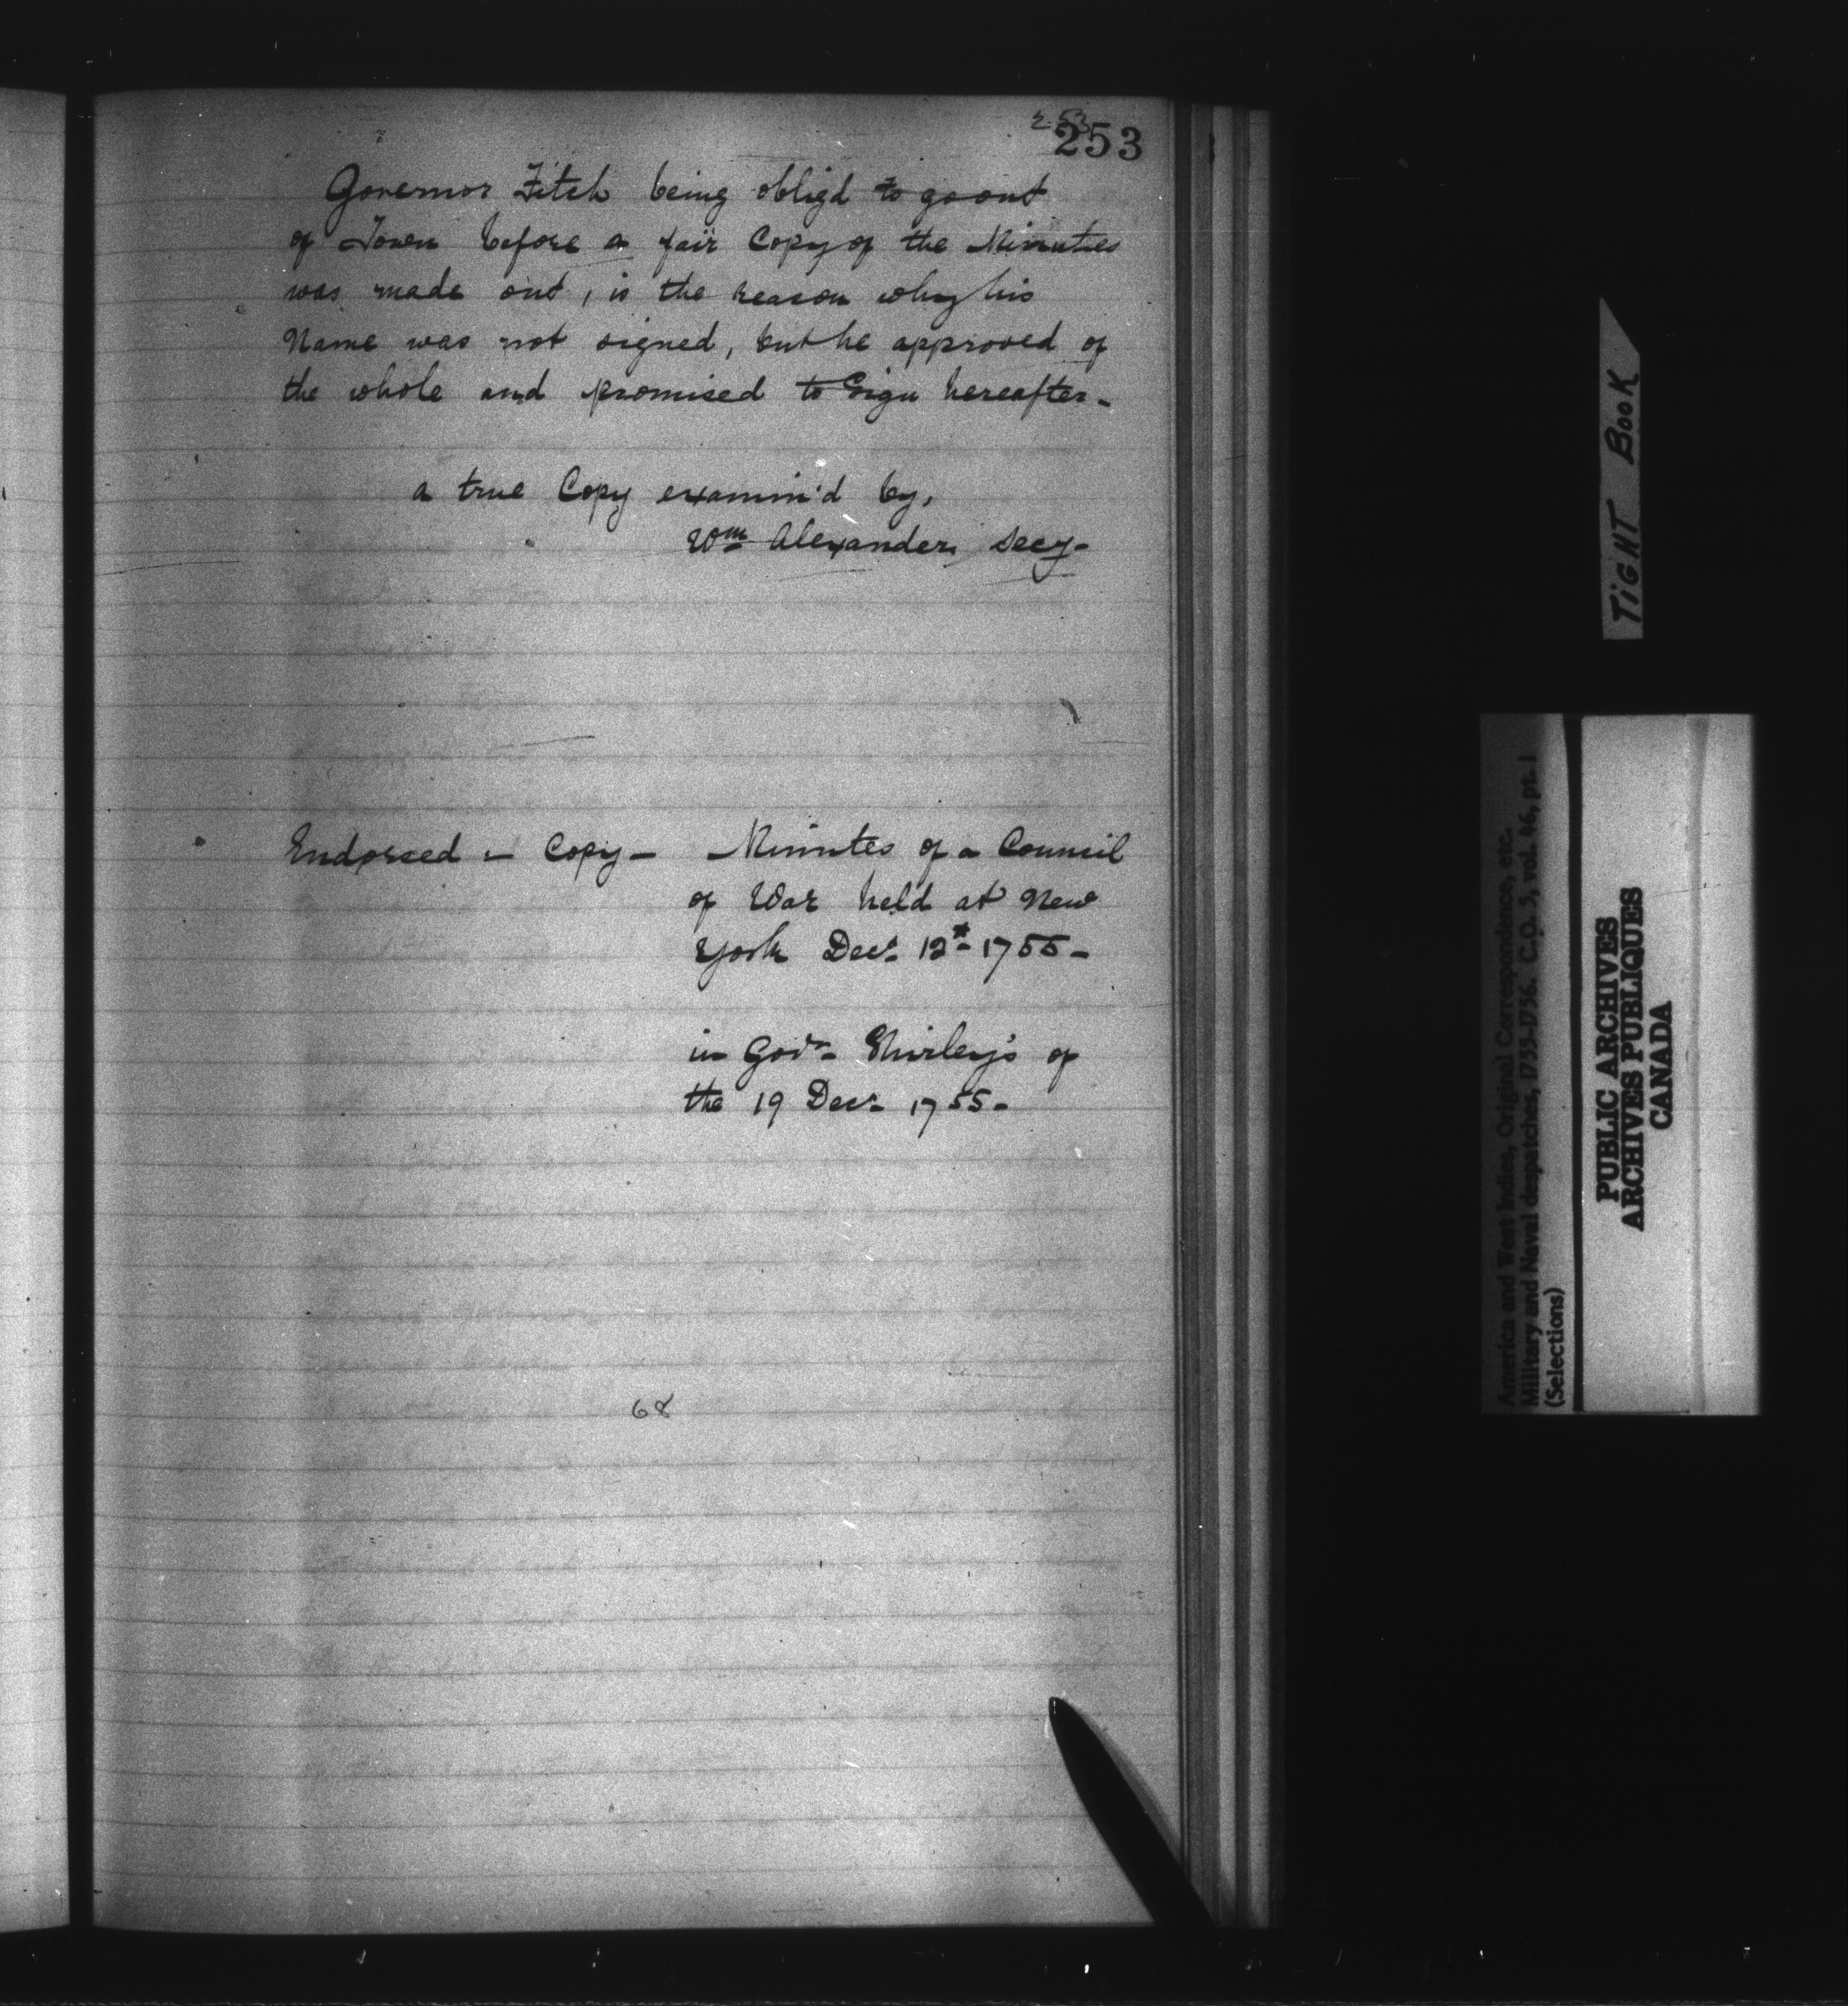 253
253
Governor Fitch being obligd to go out
of Town before a fair Copy of the Minutes
was made out, is the reason why his
Name was not signed, but he approved of
the whole and promised to Sign hereafter-
a true Copy examin'd by,
Wm Alexander, Secy-
Endorsed - Copy - Minutes of a Council
of War held at New
York Decr 12t 1755-
in Govr Shirley's of
the 19 Decr 1755-
68
TiGHT BooK
America and West Indies, Original Correspondence, etc.
Military and Naval despatches, 1755-1756. C.O. 5, vol. 46, pt. 1
(Selections)
PUBLIC ARCHIVES
ARCHIVES PUBLIQUES
CANADA